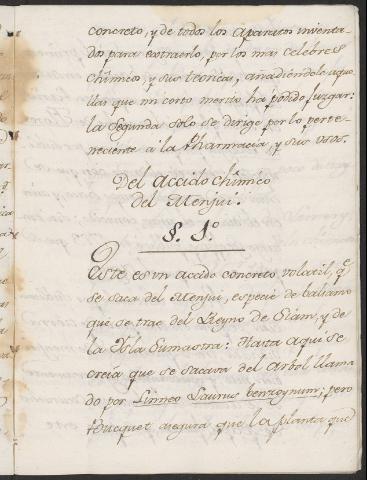 concreto, y de todos los aparatos inventa-
dos para extraerlo, por los mas celebres
chîmicos, y sus teoricas, añadiendolo aque-
llas que mi corto merito ha podido juzgar:
la segunda solo se dirige por lo perte-
neciente á la Pharmacia, y sus usos.
Del accido chîmico
del Menjui.
§. 1.º
Este es un accido concreto volatil, q.e
se saca del Menjui, especie de balsamo
que se trae del Reyno de Siám, y de
la Ysla Sumastra: Hasta aqui se
creia que se sacava del arbol llama-
do por Linneo Laurus benzoynum; pero
asegura que la planta que